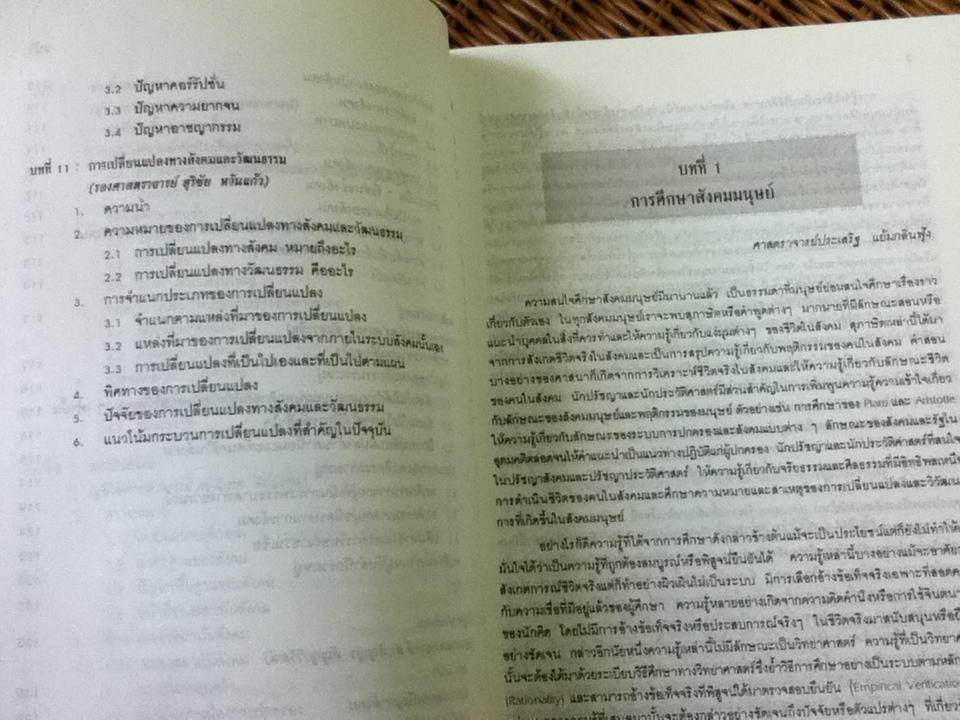 3.2 ปัญหาคอร์รัปชั่น
3.3 ปัญหาความยากจน
3.4 ปัญหาอาชญากรรม
บทที่ 11 : การเปลี่ยนแปลงทางสังคมและวัฒนธรรม
(รองศาสตราจารย์ สุริชัย หวันแก้ว)
1. ความนำ
2. ความหมายของการเปลี่ยนแปลงทางสังคมและวัฒนธรรม
2.1 การเปลี่ยนแปลงทางสังคม หมายถึงอะไร
2.2 การเปลี่ยนแปลงทางวัฒนธรรม คืออะไร
3. การจำแนกประเภทของการเปลี่ยนแปลง
3.1 จำแนกตามแหล่งที่มาของการเปลี่ยนแปลง
3.2 แหล่งที่มาของการเปลี่ยนแปลงจากภายในระบบสังคมนั้นเอง
3.3 การเปลี่ยนแปลงที่เป็นไปเองและที่เป็นไปตามแผน
4. ทิศทางของการเปลี่ยนแปลง
5. ปัจจัยของการเปลี่ยนแปลงทางสังคมและวัฒนธรรม
6. แนวโน้มกระบวนการเปลี่ยนแปลงที่สำคัญในปัจจุบัน
บทที่ 1
การศึกษาสังคมมนุษย์
ศาสตราจารย์ประเสริฐ แย้มกลิ่นฟุ้ง
ความสนใจศึกษาสังคมมนุษย์มีมานานแล้ว เป็นธรรมดาที่มนุษย์ย่อมสนใจศึกษาเรื่องราว
เกี่ยวกับตัวเอง ในทุกสังคมมนุษย์เราจะพบสุภาษิตหรือคำพูดต่างๆ มากมายที่มีลักษณะสอนหรือ
แนะนำบุคคลในสิ่งที่ควรทำและให้ความรู้เกี่ยวกับแง่มุมต่างๆ ของชีวิตในสังคม สุภาษิตเหล่านี้ได้มา
จากการสังเกตชีวิตจริงในสังคมและเป็นการสรุปความรู้เกี่ยวกับพฤติกรรมของคนในสังคม คำสอน
บางอย่างของศาสนาก็เกิดจากการวิเคราะห์ชีวิตจริงในสังคมและให้ความรู้เกี่ยวกับลักษณะชีวิต
ของคนในสังคม นักปรัชญาและนักประวัติศาสตร์มีส่วนสำคัญในการเพิ่มพูนความรู้ความเข้าใจเกี่ยว
กับลักษณะของสังคมมนุษย์และพฤติกรรมของมนุษย์ ตัวอย่างเช่น การศึกษาของ Plato และ Aristotle
ให้ความรู้เกี่ยวกับลักษณะของระบบการปกครองและสังคมแบบต่าง ๆ ลักษณะของสังคมและรัฐใน
อุดมคติตลอดจนให้คำแนะนำเป็นแนวทางปฏิบัติแก่ผู้ปกครอง นักปรัชญาและนักประวัติศาสตร์ที่สนใจ
ในปรัชญาสังคมและปรัชญาประวัติศาสตร์ ให้ความรู้เกี่ยวกับจริยธรรมและศีลธรรมที่มีอิทธิพลเหนือ
การดำเนินชีวิตของคนในสังคมและศึกษาความหมายและสาเหตุของการเปลี่ยนแปลงและวิวัฒน
การที่เกิดขึ้นในสังคมมนุษย์
อย่างไรก็ดีความรู้ที่ได้จากการศึกษาดังกล่าวข้างต้นแม้จะเป็นประโยชน์แต่ก็ยังไม่ทำให้
มั่นใจได้ว่าเป็นความรู้ที่ถูกต้องสมบูรณ์หรือพิสูจน์ยืนยันได้ ความรู้เหล่านี้บางอย่างแม้จะอาศัย
สังเกตการณ์ชีวิตจริงแต่ก็ทำอย่างผิวเผินไม่เป็นระบบ มีการเลือกอ้างข้อเท็จจริงเฉพาะที่สอดค
กับความเชื่อที่มีอยู่แล้วของผู้ศึกษา ความรู้หลายอย่างเกิดจากความคิดคำนึงหรือการใช้จินตน
ของนักคิด โดยไม่มีการอ้างข้อเท็จจริงหรือประสบการณ์จริงๆ ในชีวิตจริงมาสนับสนุนหรือยื
อย่างชัดเจน กล่าวอีกนัยหนึ่งความรู้เหล่านี้ไม่มีลักษณะเป็นวิทยาศาสตร์ ความรู้ที่เป็นวิทยาศ
นั้นจะต้องได้มาด้วยระเบียบวิธีศึกษาทางวิทยาศาสตร์ซึ่งย้ำวิธีการศึกษาอย่างเป็นระบบตามหลัก
(Rationality) และสามารถอ้างข้อเท็จจริงที่พิสูจน์ได้มาตรวจสอบยืนยัน (Empirical Verification
จะต้องกล่าวอย่างชัดเจนถึงปัจจัยหรือตัวแปรต่างๆ ที่เกี่ยวข